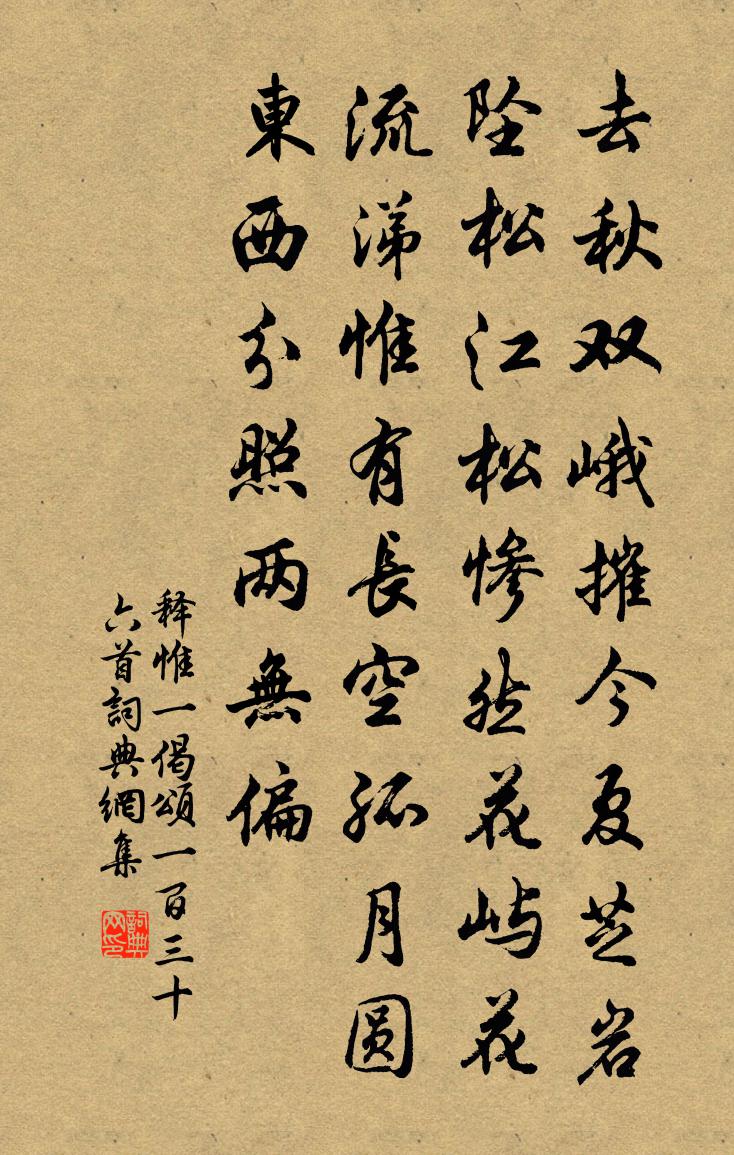 去秋双峨摧今夏芝岩
坠松江松惨然花屿花
流涕惟有長空孤月圆
東西分照两無偏
释惟一偈頌一百三十
六首詞典網集
詞典网印